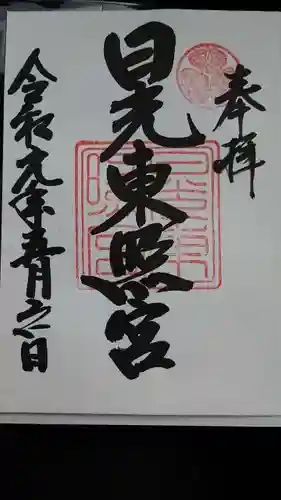 奉拝
日光東照宮
令和元年壽月之一日